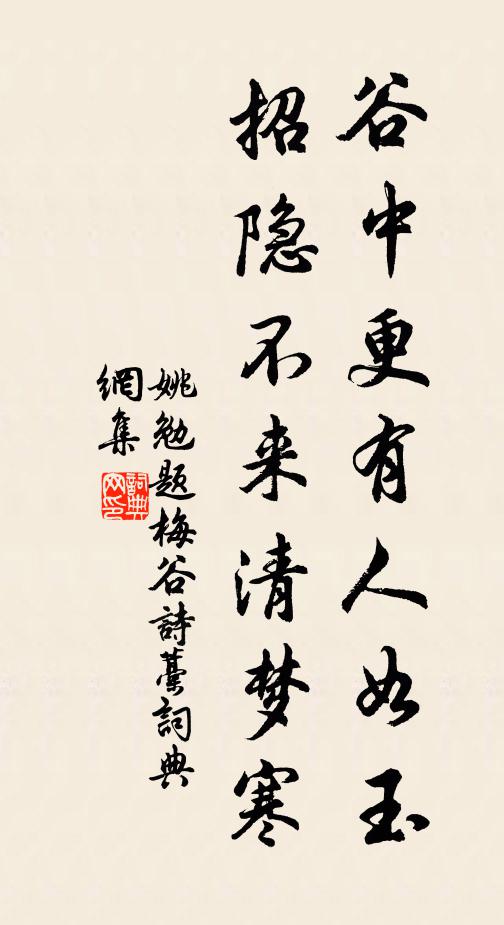 谷中更有人如玉
招隐不来清梦寒
姚勉题梅谷詩藳詞典
網集
詞典
网印